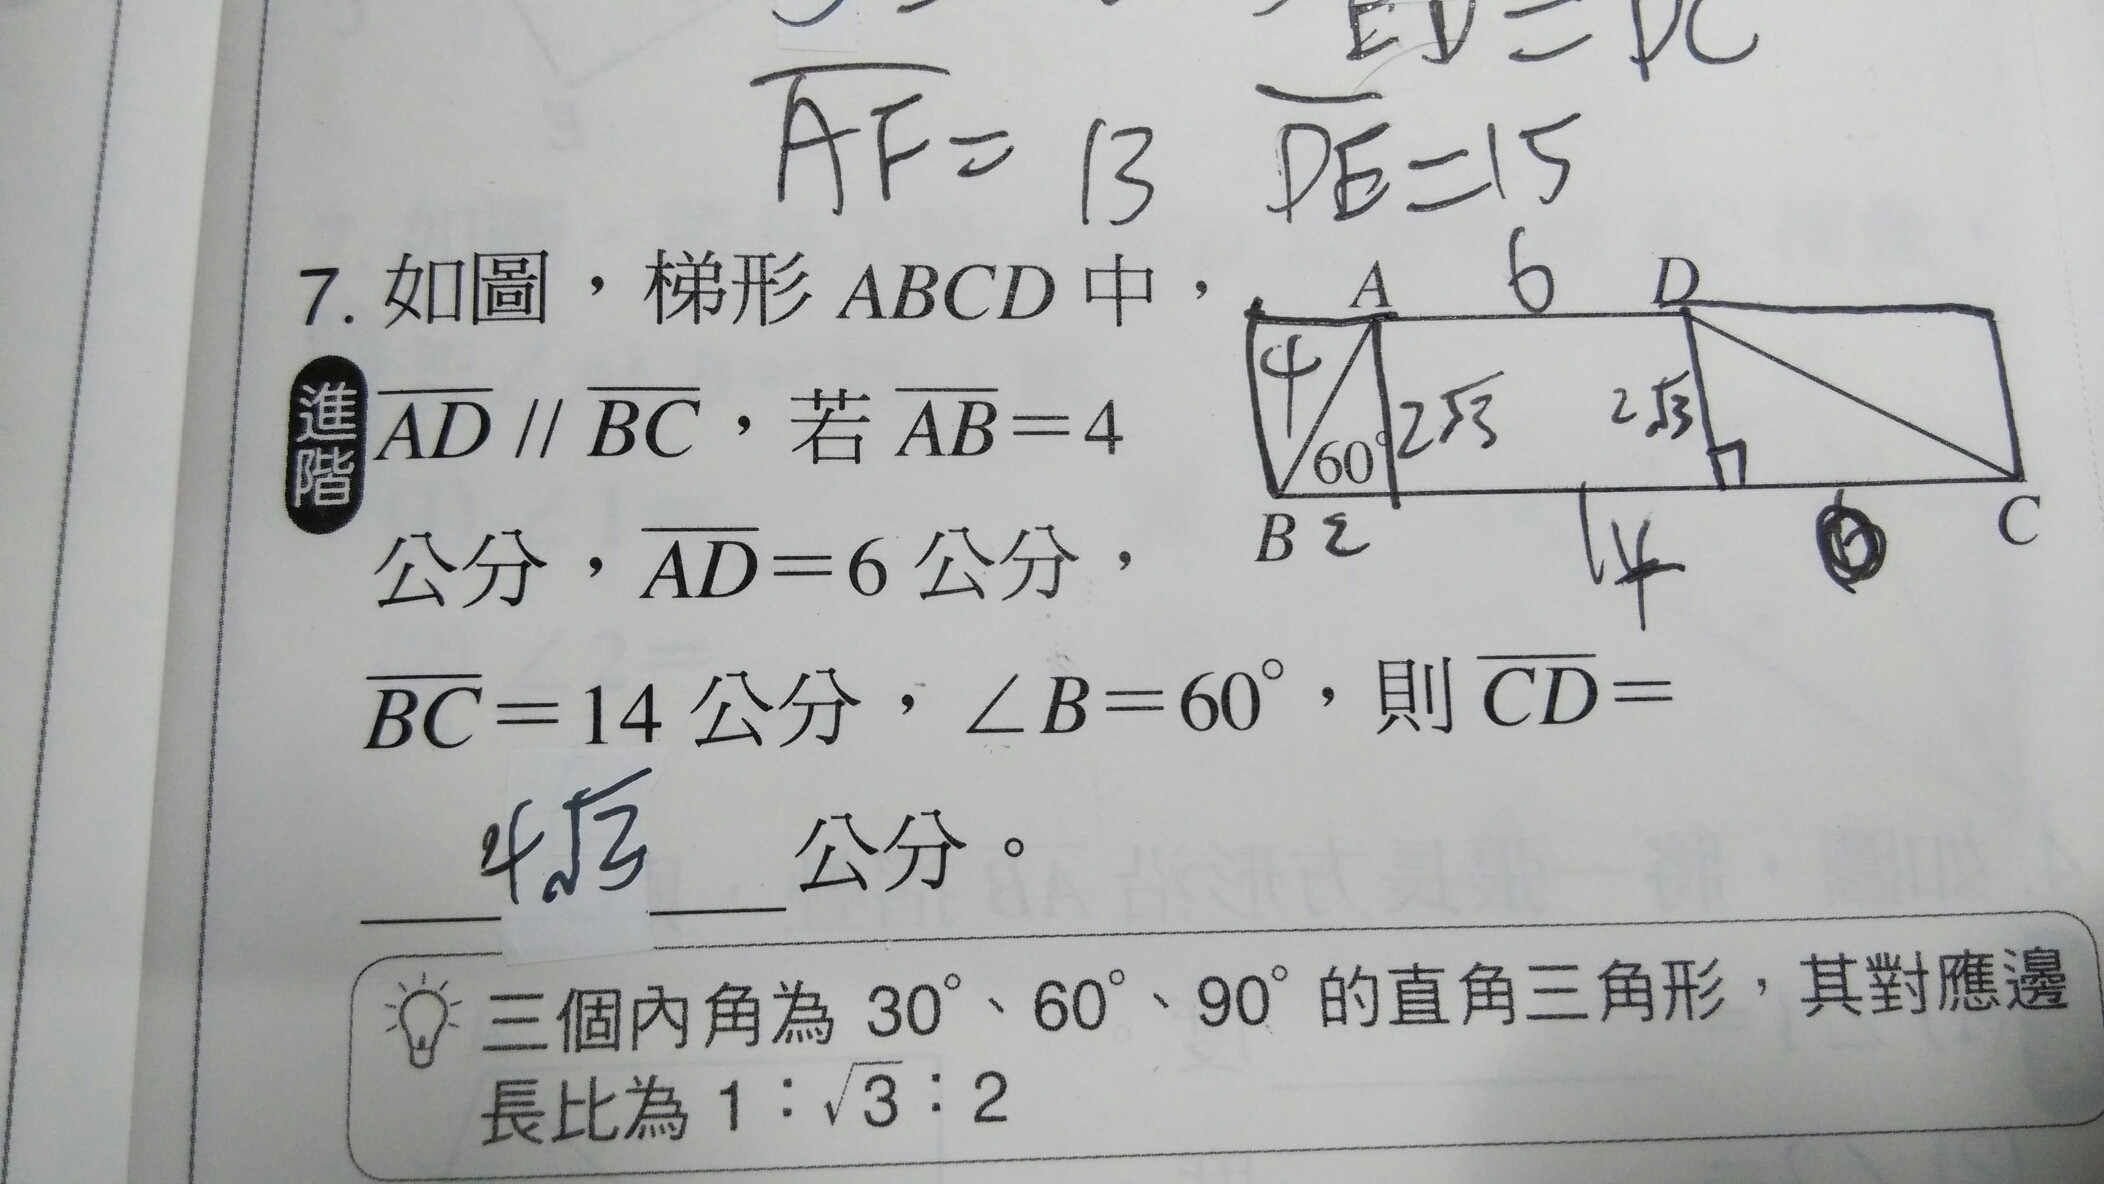 ED=DC
AF=13 DE=15
7. 如圖，梯形 ABCD 中，
進階
AD // BC，若 AB=4
公分，AD=6 公分，
BC=14 公分，∠B=60°，則 CD=
4√3 公分。
A 6 D
4 2√3 2√3
60°
B 2 14 6 C
三個內角為 30°、60°、90° 的直角三角形，其對應邊
長比為 1：√3：2